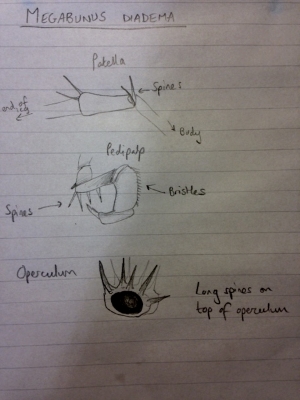 MEGABUNUS DIADEMA
Patella
Spines
end of
leg
Body
Pedipalp
Spines
Bristles
Operculum
Long spines on
top of operculum